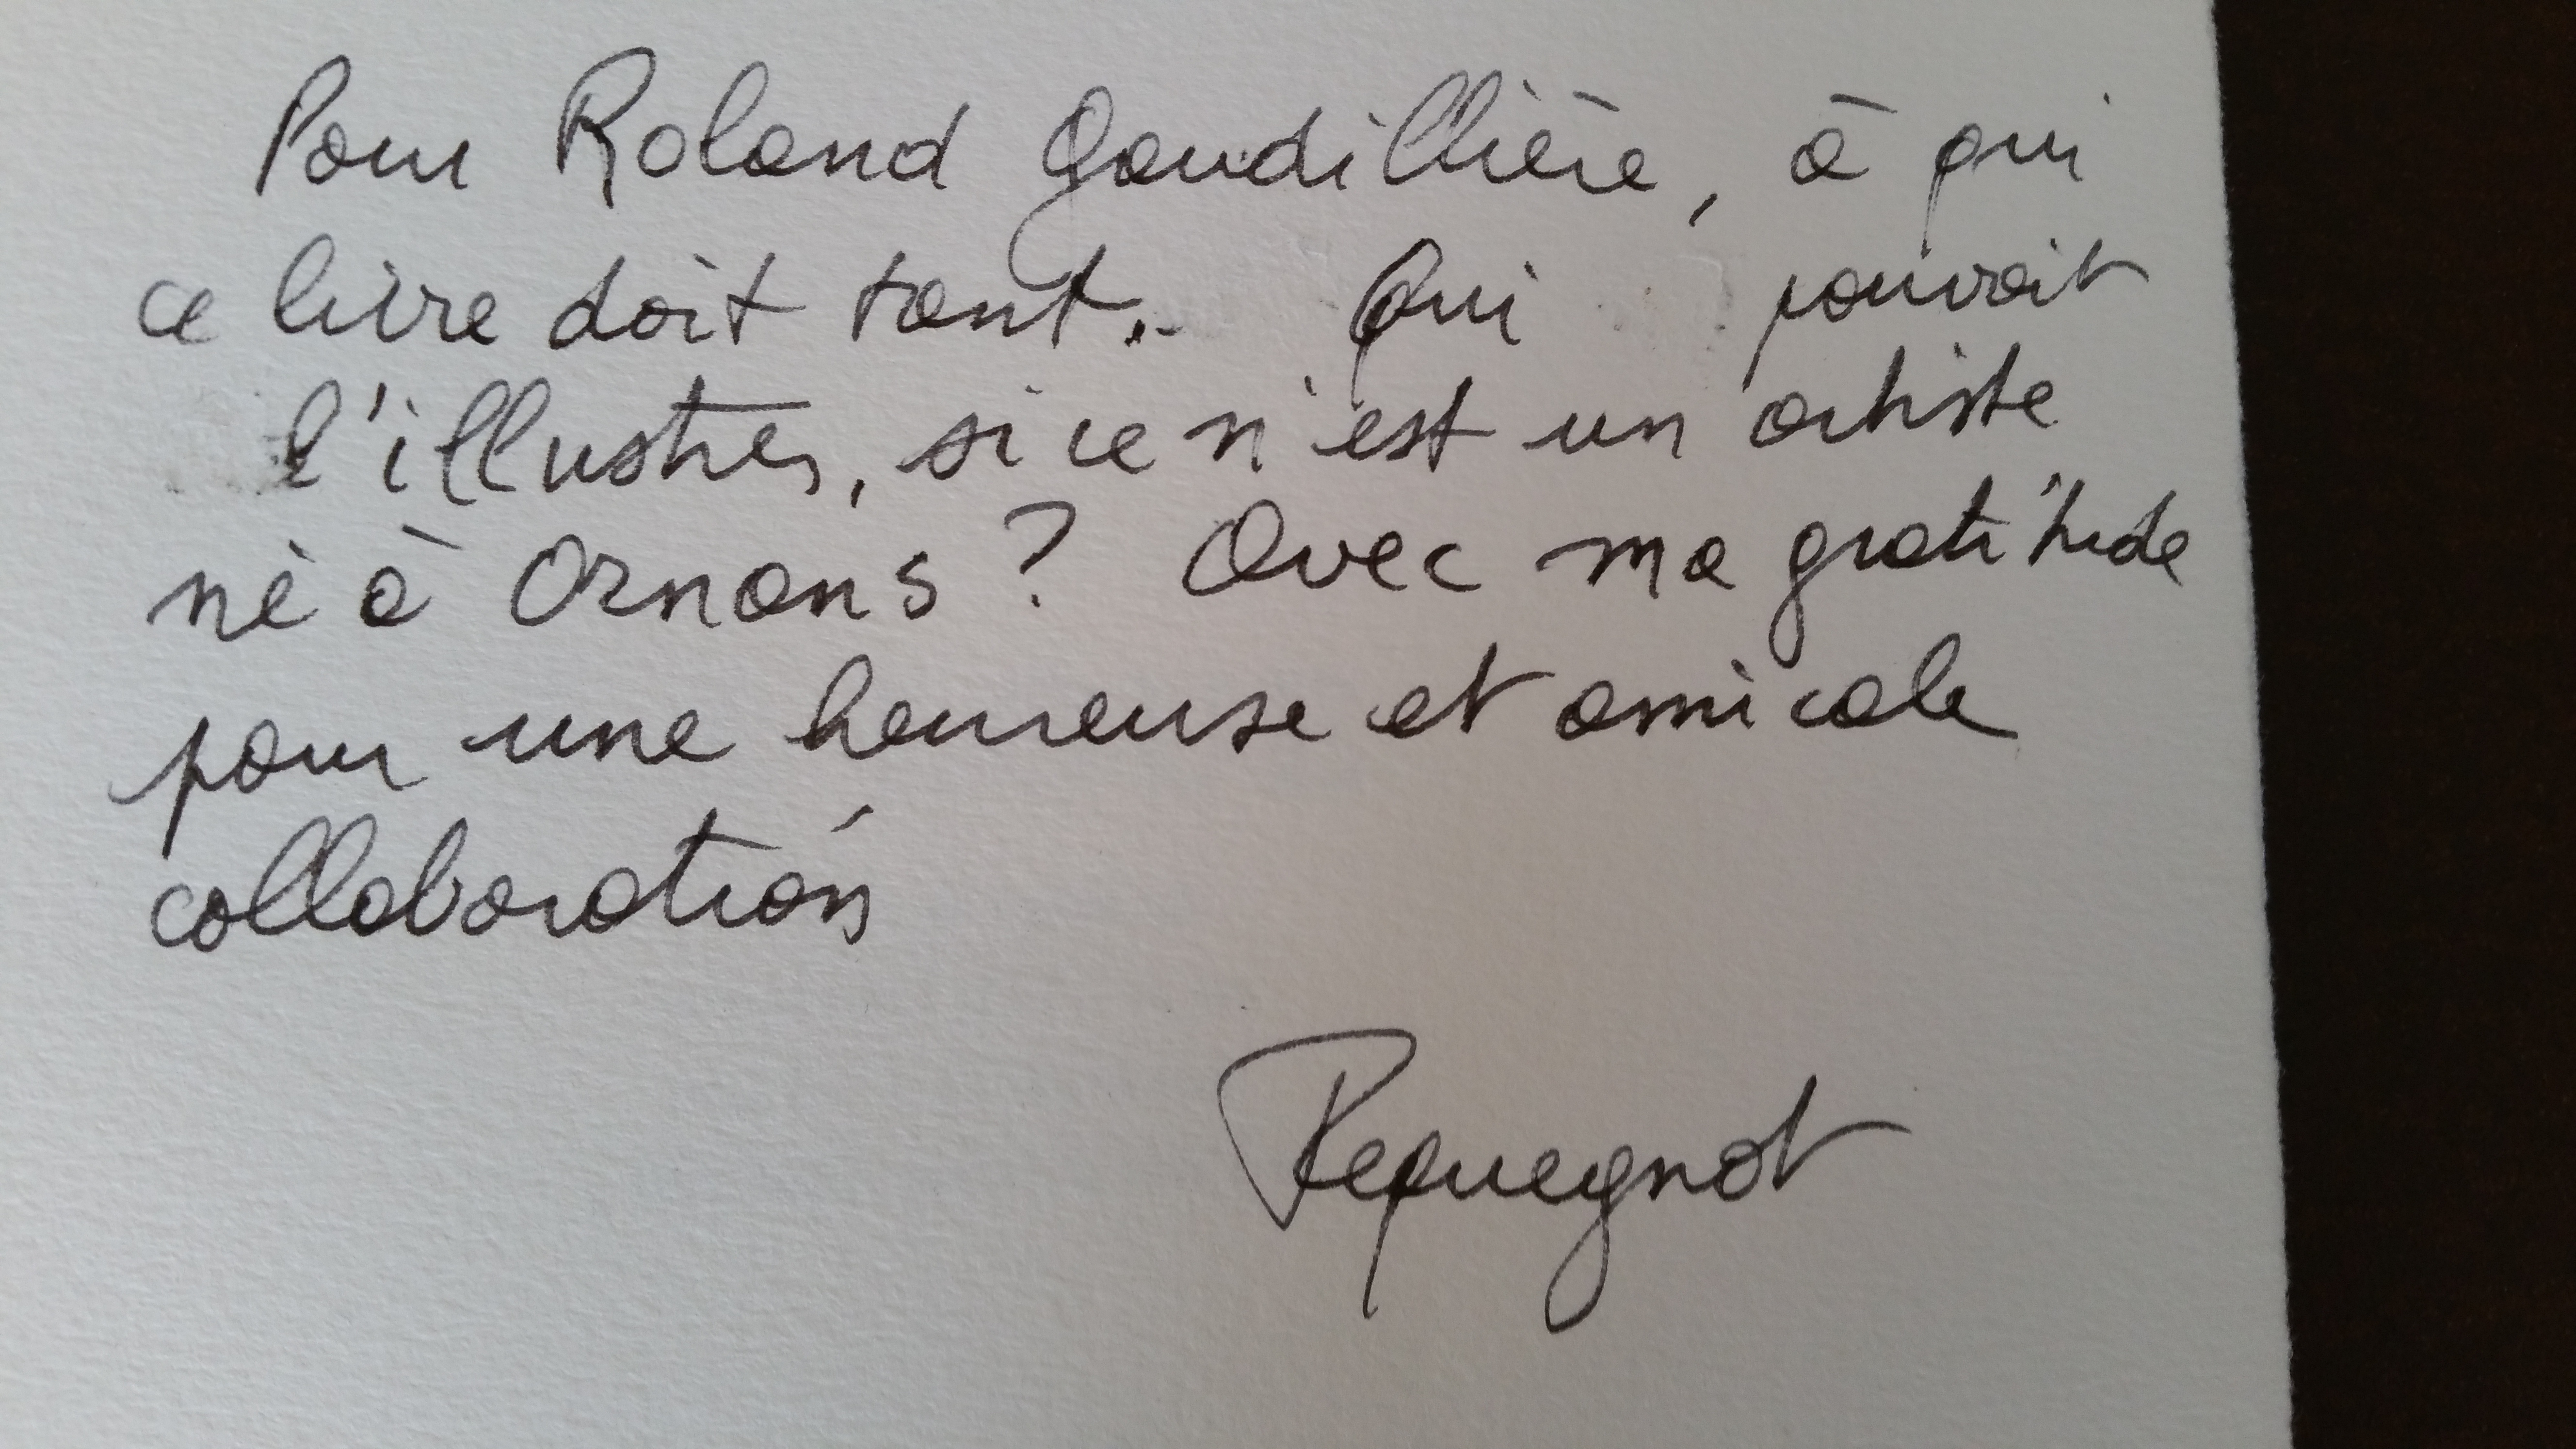 Pour Roland Gaudillière, à qui
ce livre doit tant.. Qui pouvait
l'illustrer, si ce n'est un artiste
né à Ornans ? Avec ma gratitude
pour une heureuse et amicale
collaboration
Pequegnot